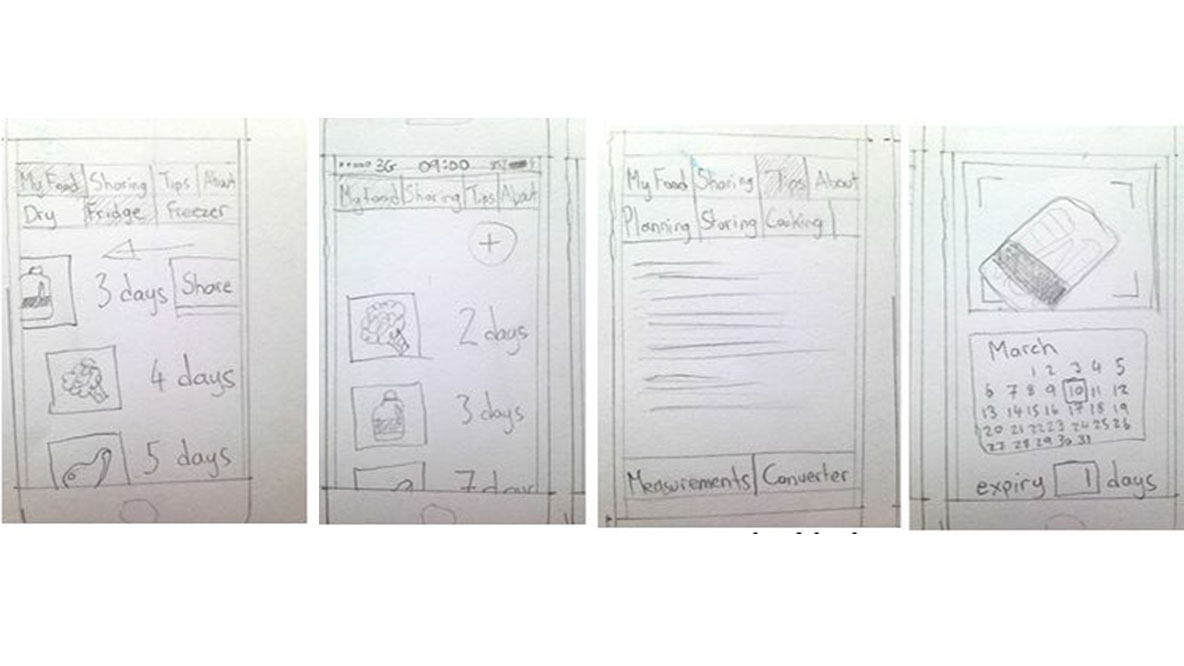 My Food Sharing Tips About
Dry Fridge Freezer
3 days Share
4 days
5 days
3G 09:00
My Food Sharing Tips About
+
2 days
3 days
7 days
My Food Sharing Tips About
Planning Storing Cooking
Measurements Converter
March
1 2 3 4 5
6 7 8 9 10 11 12
13 14 15 16 17 18 19
20 21 22 23 24 25 26
27 28 29 30 31
expiry 1 days